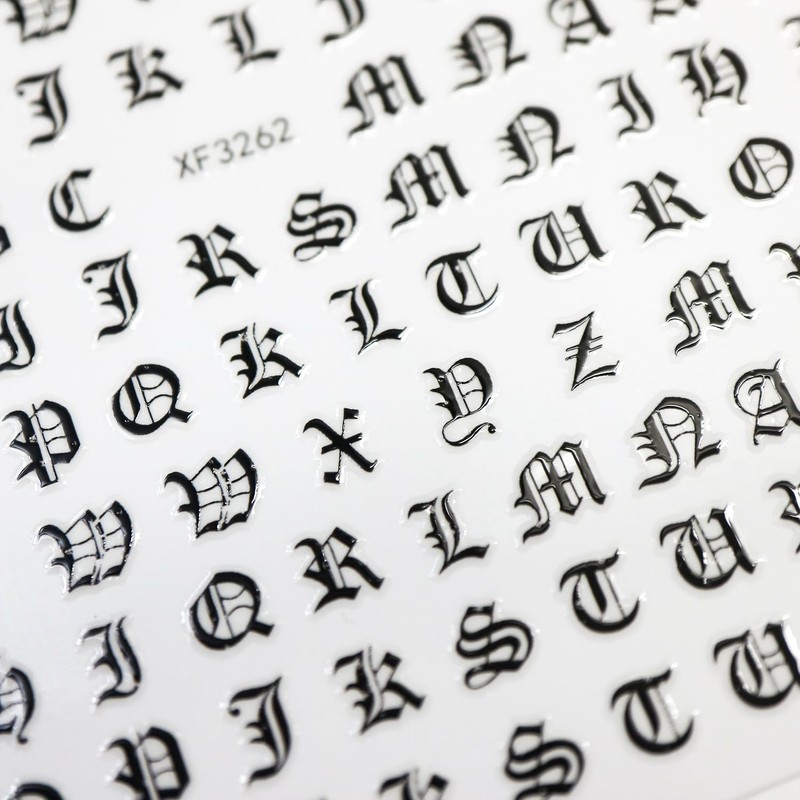 J K L I
C XF3262 M N A A
J R S M N I H
P Q K L T U R O
W W X Y Z M
I Q R L M N A
P J K S T U
S T U